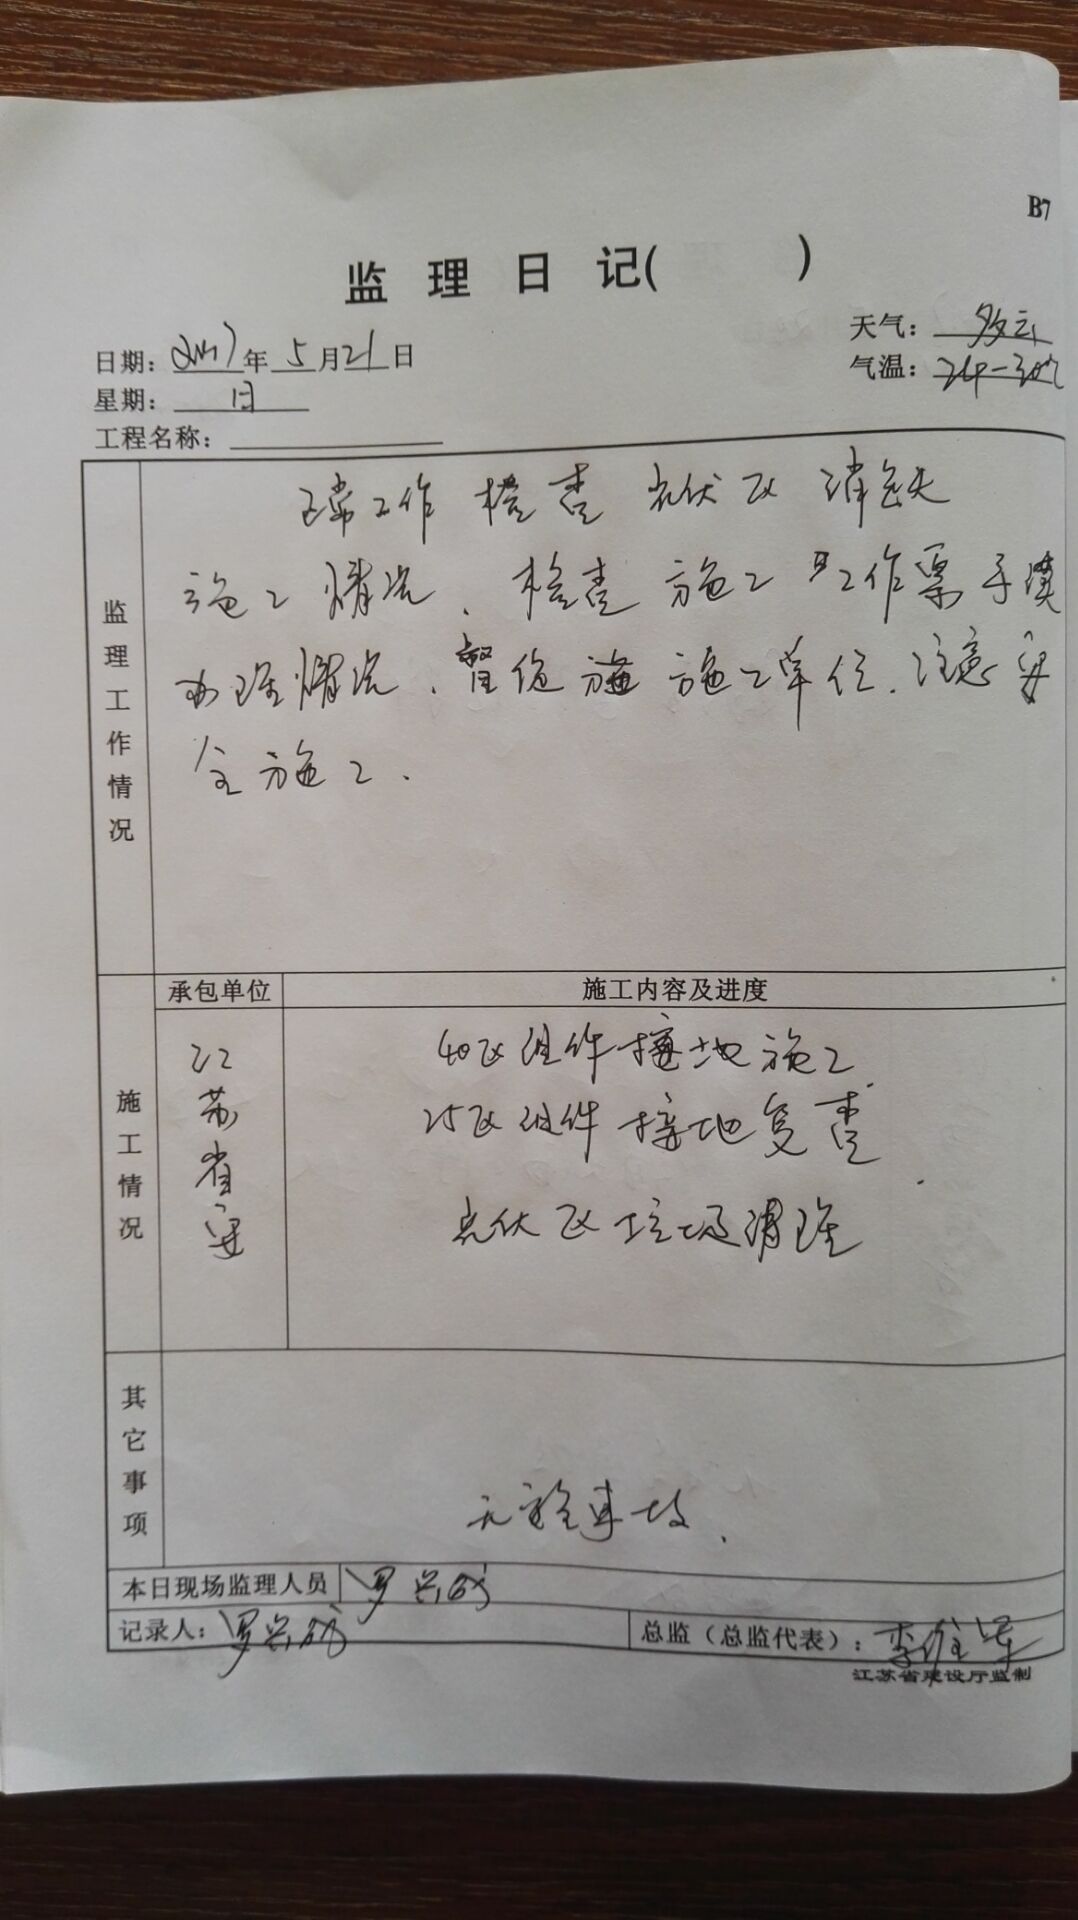 B7
监理日记( )
天气：多云
日期：2017年5月21日
气温：24-30℃
星期：日
工程名称：
监理工作情况
正常工作 检查 光伏区 消缺
施工情况、检查 施工 工作票手续
办理情况、督促 施工单位、注意安
全施工.
承包单位
施工内容及进度
施工情况
江苏省安
40区组件接地施工
25区组件接地复查
光伏区垃圾清理
其它事项
无安全事故.
本日现场监理人员 罗兴成
记录人：罗兴成
总监（总监代表）：李维
江苏省建设厅监制